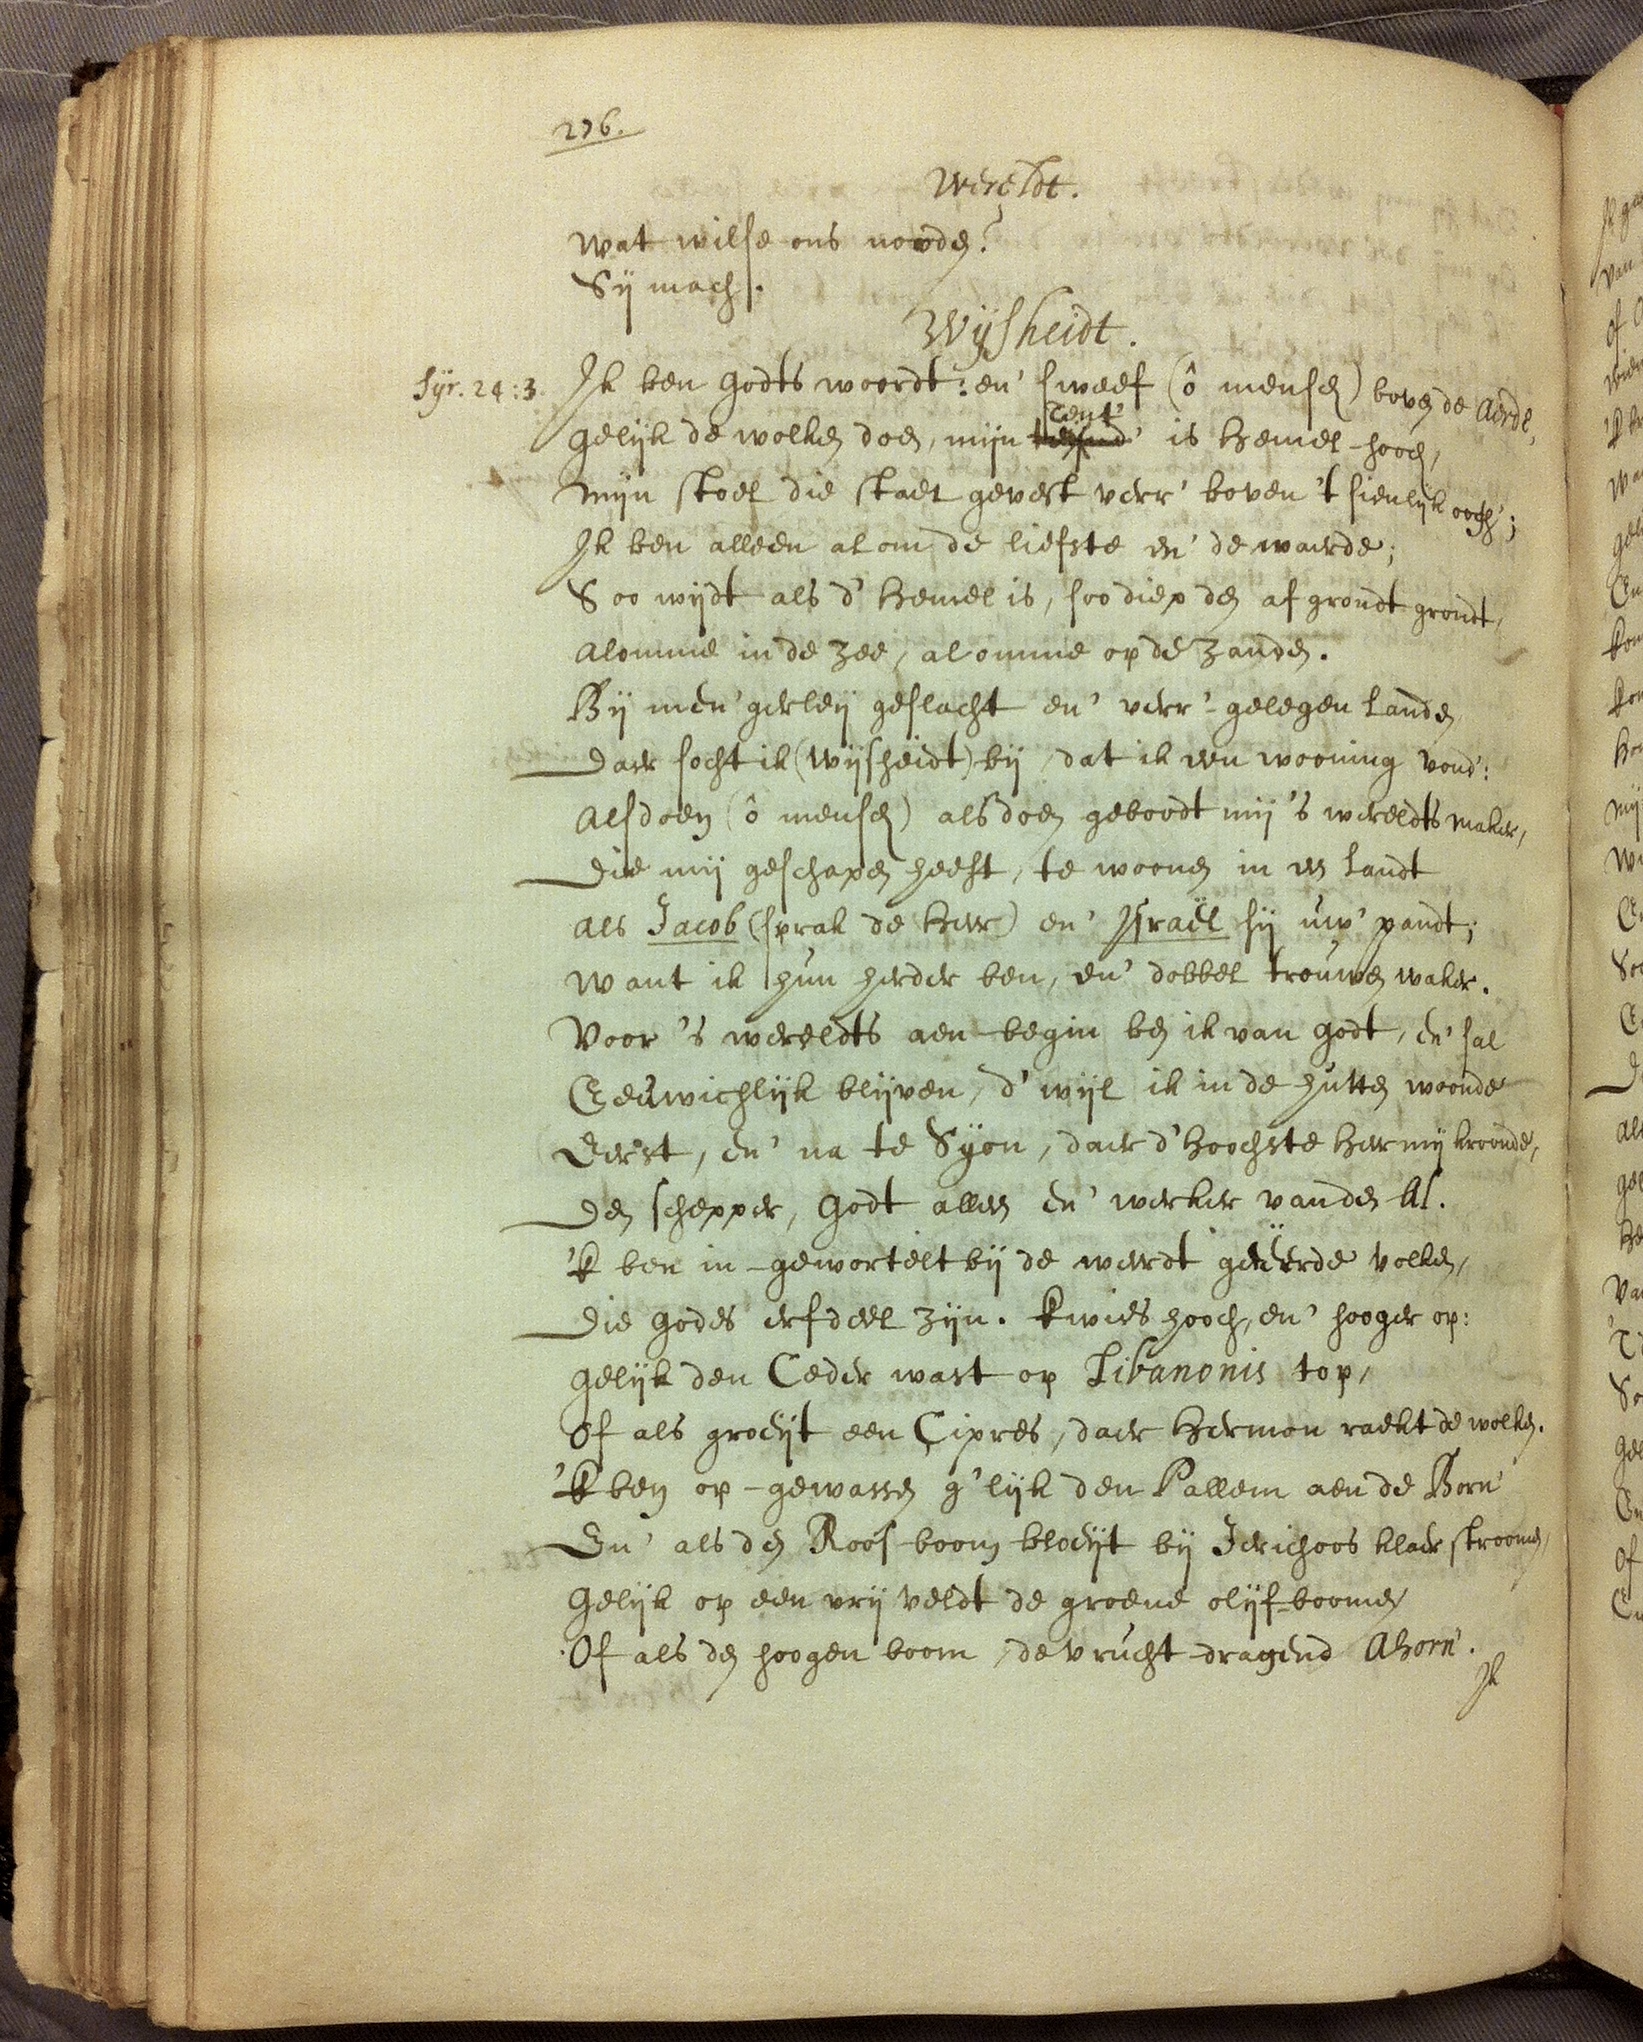 276.
Wereldt.
Wat wilse ons nooden?
Sij mach.
Wijsheidt.
Syr. 24:3. Ik ben Godts woordt: en' sweef (ô mensch) boven de Aerde,
gelijk de wolken doen, mijn Tent' is Hemel-hooch,
Mijn stoel die staet gevest verr' boven 't sienlijk ooch';
Ik ben alleen alom de liefste en' de waerde;
Soo wijdt als d' Hemel is, soo diep den afgrondt grondt,
Alomme in de Zee, alomme op de Zanden.
Bij men'gerleij geslacht en' verr'-gelegen Landen
Daer socht ik (Wijsheidt) bij, dat ik een wooning vond':
Alsdoen (ô mensch) alsdoen geboodt mij 's werelds maker,
Die mij geschapen heeft, te woonen in een Landt
Als Jacob (sprak de Heer) en' Israël sij uw' pandt;
Want ik hun herder ben, en' dobbel trouwen waker.
Voor 's wereldts aen-begin ben ik van Godt, en' sal
Eeuwichlijk blijven, d'wijl ik in de hutten woonde
Eerst, en' na te Syon, daer d'Hoochste Heer mij kroonde,
Den schepper, Godt alleen en' werker van den Al.
'k ben in-gewortelt bij de weerdt geëerde volken,
Die Godes erfdeel zijn. k wies hooch, en' hooger op:
Gelijk den Ceder wast op Libanonis top,
Of als groeijt een Cipres, daer Hermon raekt de wolken.
'k ben op-gewassen g'lijk den Pallem aen de Born'
En' als den Roos-boom bloeijt bij Jerichoos klaer stroomen,
Gelijk op een vrij veldt de groene olijf-boomen
Of als den hoogen boom, de vrucht-dragend Ahorn'.
Ik